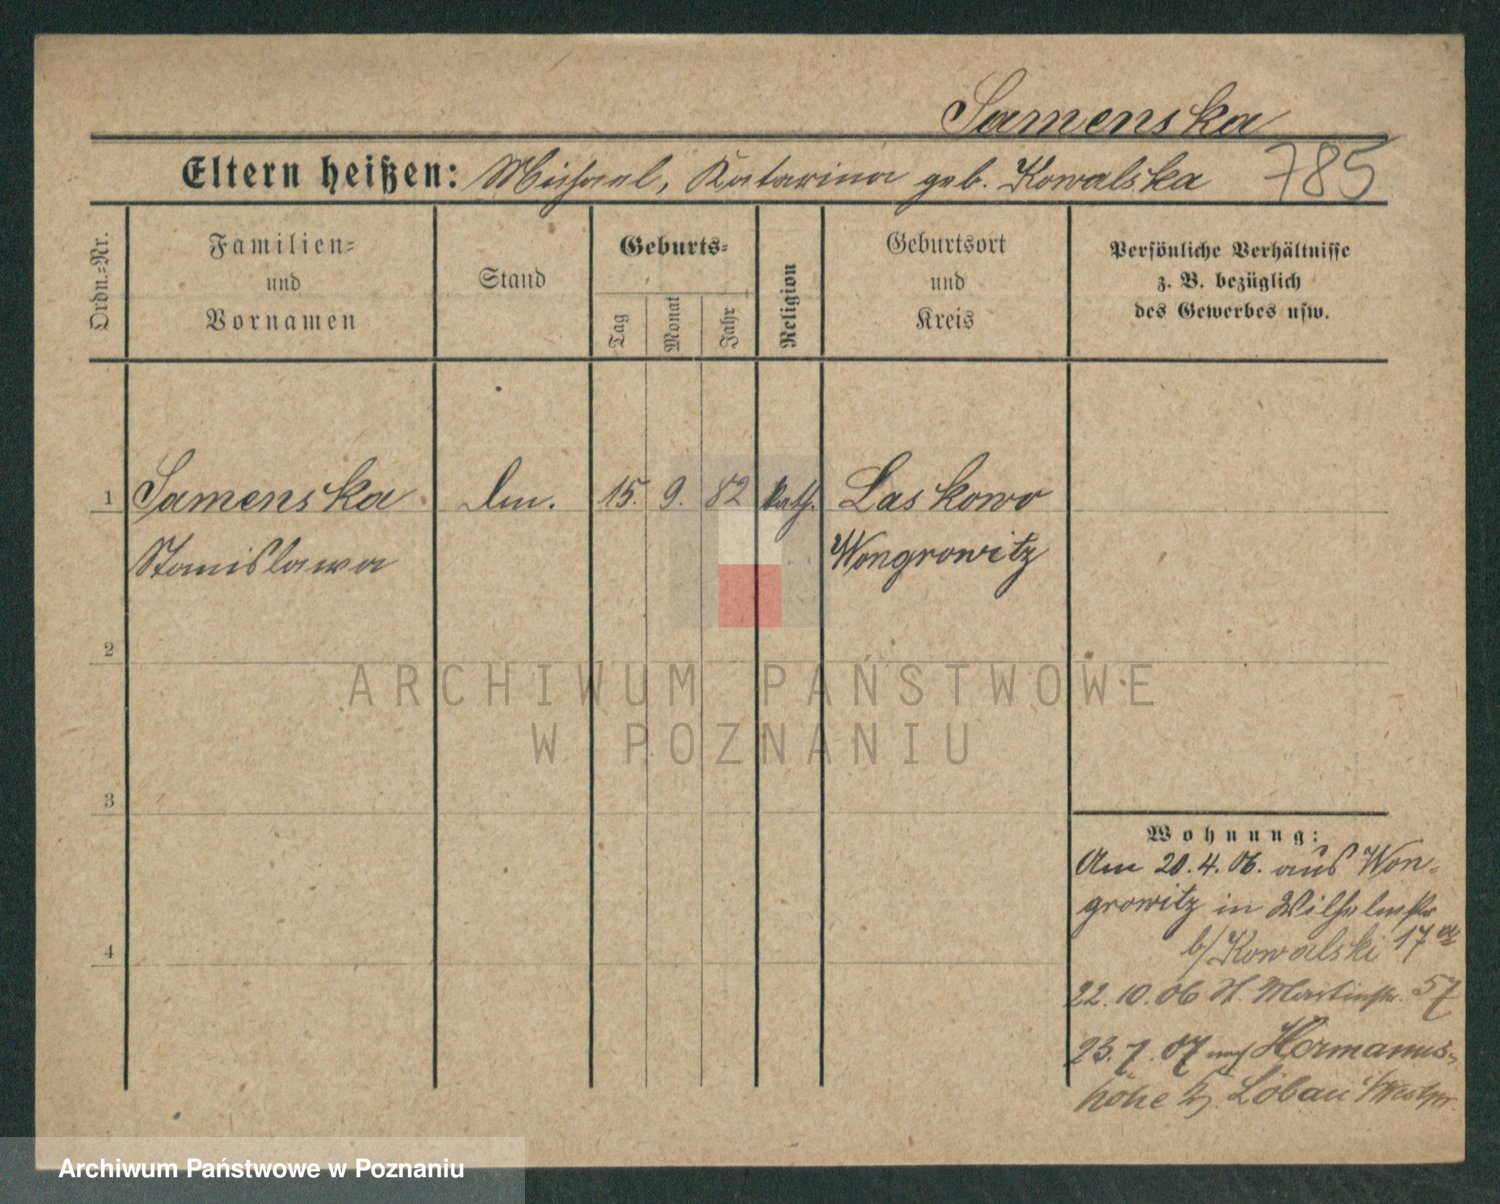 Samenska
Eltern heißen: Michael, Katarina geb. Kowalska 785
Ordn.=Nr.
Familien=
und
Vornamen
Stand
Geburts=
Tag
Monat
Jahr
Religion
Geburtsort
und
Kreis
Persönliche Verhältnisse
z. B. bezüglich
des Gewerbes usw.
1 Samenska 15. 9. 82 kath. Laskowo
Stanislawa Wongrowitz
2
3
4
Wohnung:
Am 20.4.06. aus Won-
growitz in Wilhelmstr
b/Kowalski 17
22.10.06 St. Martinstr. 57
23.7.07 nach Hermanns-
höhe Kr. Löbau Westpr.
ARCHIWUM PAŃSTWOWE
W POZNANIU
Archiwum Państwowe w Poznaniu